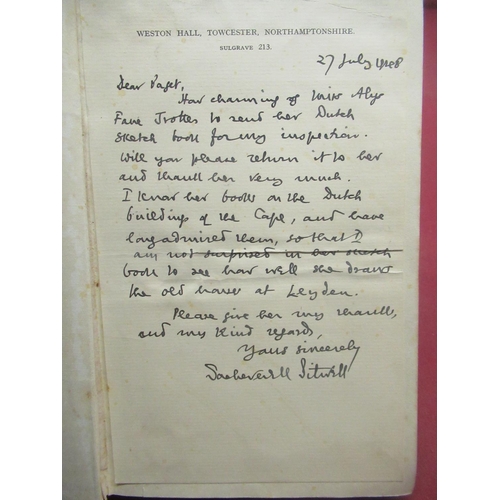 WESTON HALL, TOWCESTER, NORTHAMPTONSHIRE.
SULGRAVE 213.
27 July 1948
Dear Paget,
How charming of Miss Alys
Fane Trotter to send her Dutch
sketch book for my inspection.
Will you please return it to her
and thank her very much.
I know her books on the Dutch
buildings of the Cape, and have
long admired them, so that I
am not surprised in her sketch
book to see how well she draws
the old houses at Leyden.
Please give her my thanks,
and my kind regards,
Yours sincerely
Sacheverell Sitwell